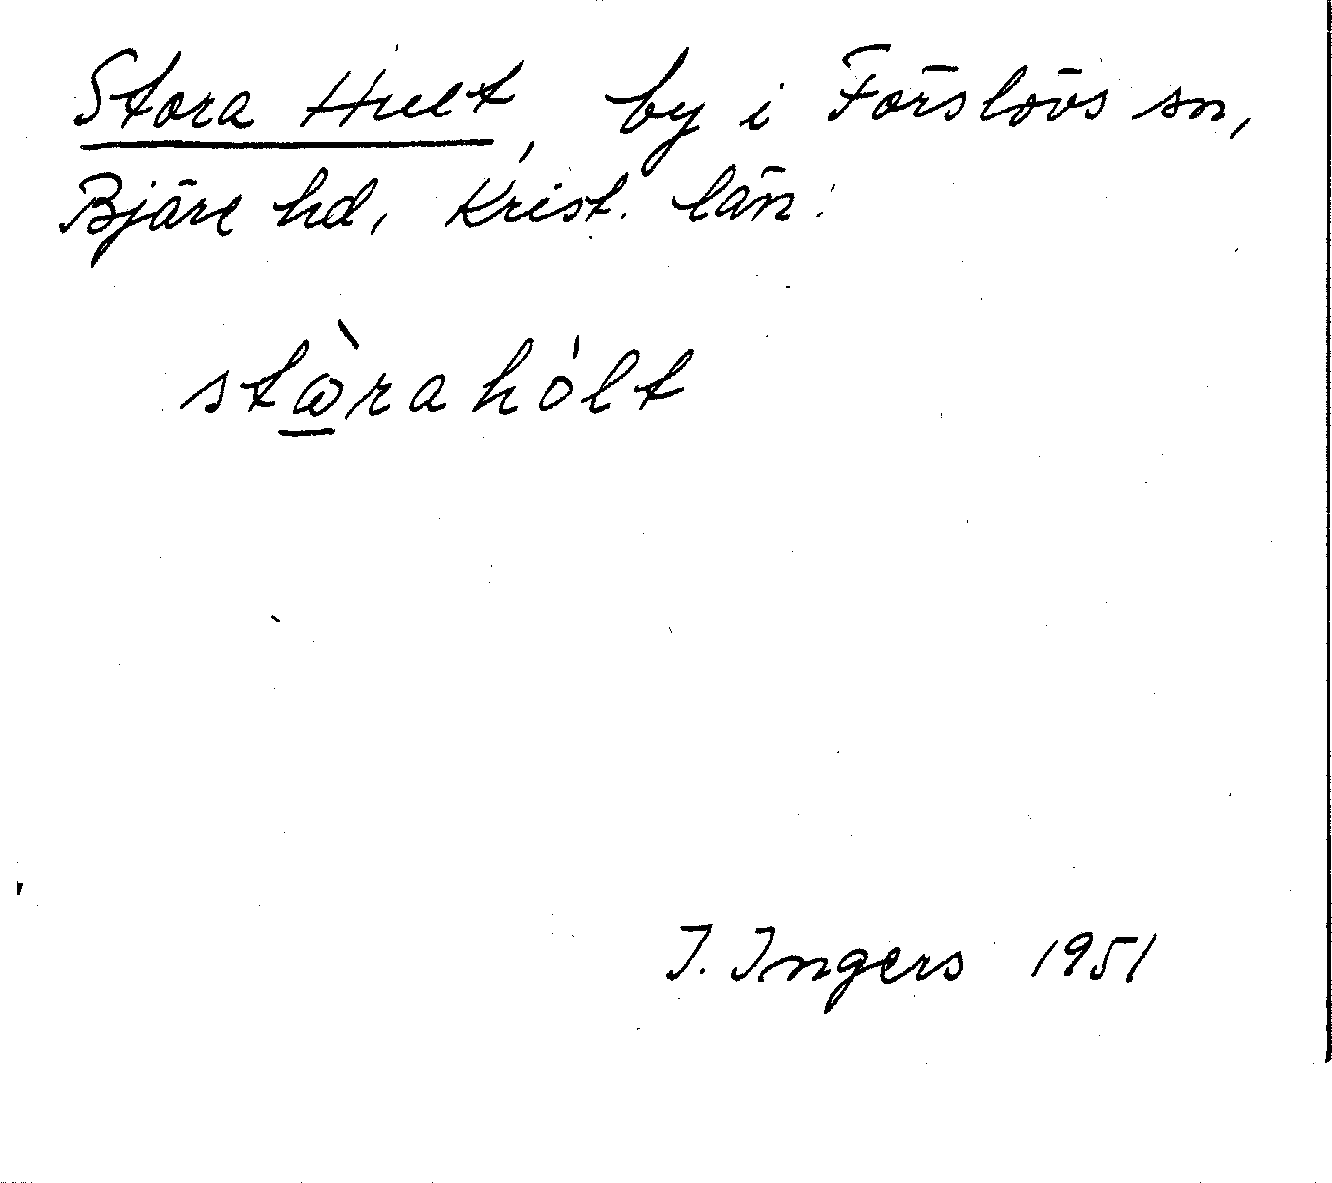 Stora Hult, by i Förslövs sn,
Bjäre hd, Krist. län.
stὼrahólt
I. Ingers 1951